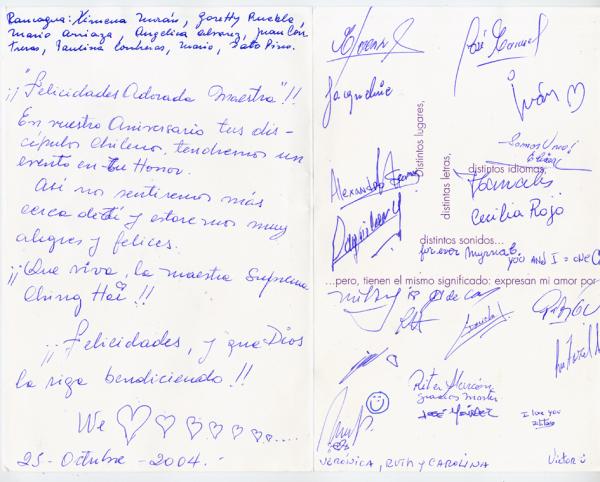 Rancagua: Ximena Durán, Goretty Puebla,
Mario Arriaza, Angélica Alvarez, Juan Con
treras, Paulina Contreras, Mario, Pino.
¡¡ "Felicidades Adorada Maestra" !!
En vuestro Aniversario tus dis-
cípulos chilenos, tendremos un
evento en tu Honor.
Así nos sentiremos más
cerca de tí y estaremos muy
alegres y felices.
¡¡ Que viva, la maestra Suprema
Ching Hai !!
¡¡ Felicidades, y que Dios
la siga bendiciendo !!
We
25 - Octubre - 2004.
José Manuel
Jacqueline
Iván
distintos lugares,
distintas letras,
Somos Uno!
Eliana
distintos idiomas,
Alexandra
Cecilia Rojo
distintos sonidos...
forever Myrna
YOU AND I = ONE
...pero, tienen el mismo significado: expresan mi amor por
Rita Alarcón
gracias master
JOSÉ
I love you
VERÓNICA, RUTH y CAROLINA
Victor